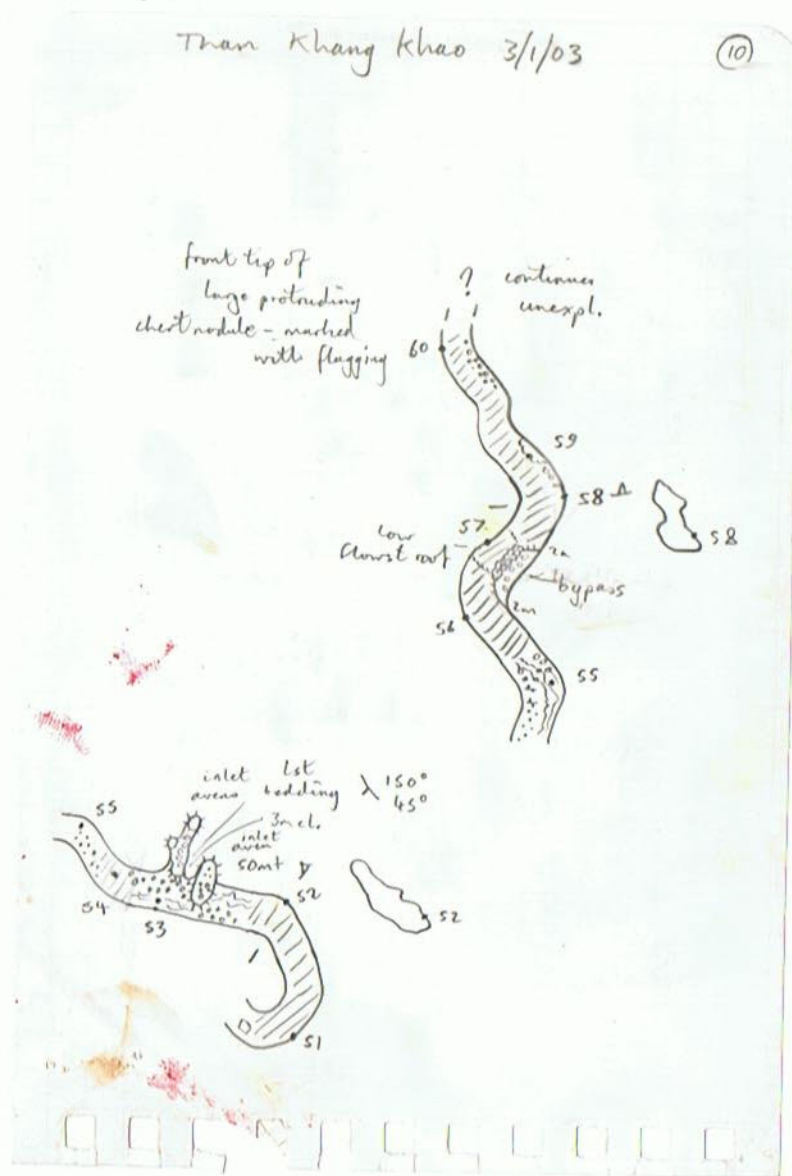 Tham Khang Khao 3/1/03
10
front tip of
large protruding
chert nodule - marked
with flagging
?
continues
unexpl.
60
59
58
58
57
low
bypass
2m
56
55
inlet
avens
Lst
bedding
150°
45°
55
3m cl.
inlet
aven
50mt
52
52
54
53
51